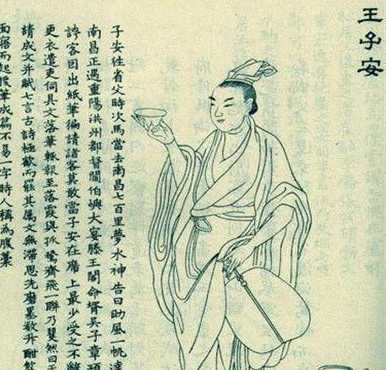 王子安
子安往省父時次馬當去南昌七百里夢水神告曰助風一帆達
南昌正遇重陽洪州都督閻伯嶼大宴滕王閣命壻吳子章預
誇客因出紙筆徧請諸客莫敢當子安在席上最少受之不辭
更衣遣吏伺其文落筆輒報至落霞與孤鶩齊飛一聯乃矍然曰天
請成文并賦七言古詩極歡而罷其属文無滯思先磨墨數升酣飲
面寤而起援筆成篇不易一字時人稱為腹藁